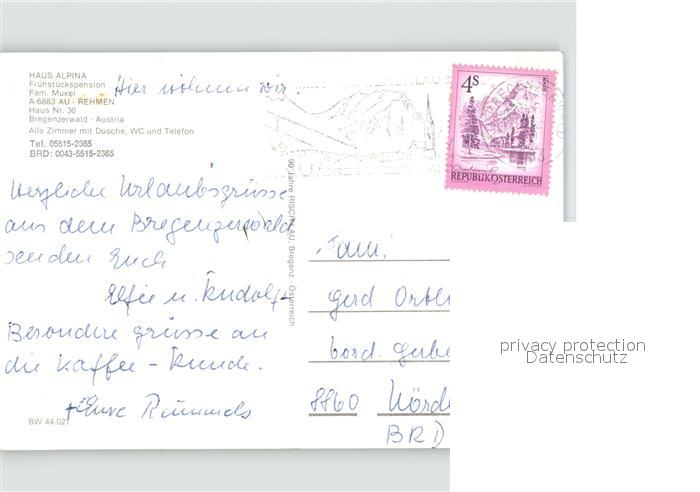 HAUS ALPINA
Frühstückspension
Fam. Muxel
A-6883 AU - REHMEN
Haus Nr. 30
Bregenzerwald - Austria
Alle Zimmer mit Dusche, WC und Telefon
Tel. 05515-2365
BRD: 0043-5515-2365
Hier wohnen wir.
4S
REPUBLIK ÖSTERREICH
Herzliche Urlaubsgrüsse
aus dem Bregenzerwald
senden Euch
Elfie u. Rudolf
Besondere grüsse an
die Kaffee - Runde.
BW 44.021
90 Jahre RISCH-LAU, Bregenz - Österreich
Fam.
gerd
8860 Nörd
BRD
privacy protection
Datenschutz